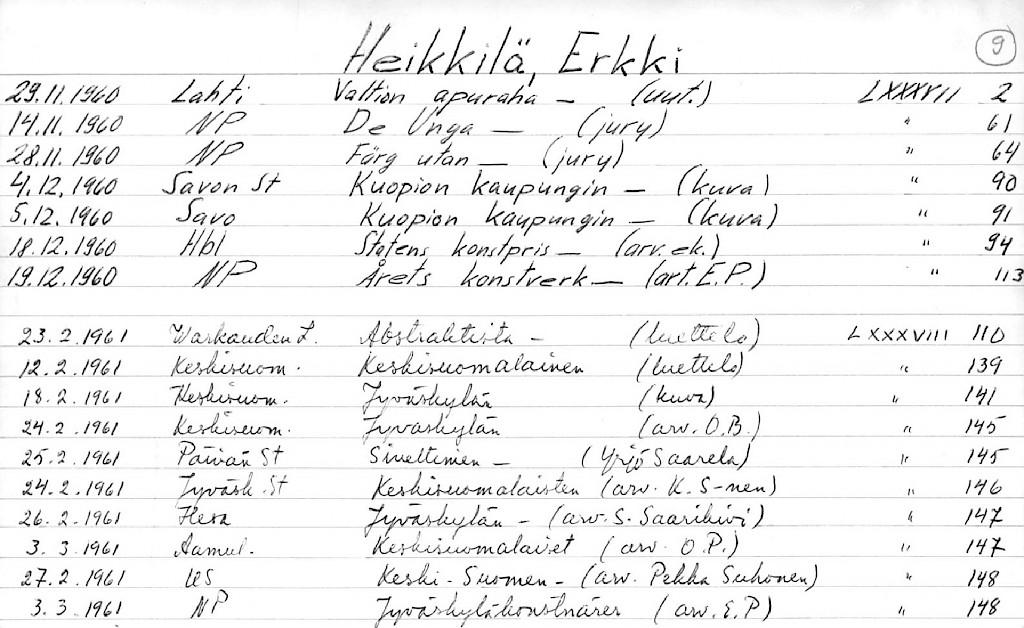 9
Heikkilä, Erkki
29.11.1960 Lahti Valtion apuraha — (uut.) LXXXVII 2
14.11.1960 NP De Unga — (jury) " 61
28.11.1960 NP Färg utan — (jury) " 64
4.12.1960 Savon St Kuopion kaupungin — (kuva) " 90
5.12.1960 Savo Kuopion kaupungin — (kuva) " 91
18.12.1960 Hbl Statens konstpris — (arv. ek.) " 94
19.12.1960 NP Årets konstverk — (art. E.P.) " 113
23.2.1961 Warkauden L. Abstraktista — (luettelo) LXXXVIII 110
12.2.1961 Keskisuom. Keskisuomalainen (luettelo) " 139
18.2.1961 Keskisuom. Jyväskylän (kuva) " 141
24.2.1961 Keskisuom. Jyväskylän (arv. O.B.) " 145
25.2.1961 Päivän St Siveltimen — (Yrjö Saarela) " 145
24.2.1961 Jyväsk. St Keskisuomalaisten (arv. K. S-nen) " 146
26.2.1961 Hesa Jyväskylän — (arv. S. Saarikivi) " 147
3.3.1961 Aamul. Keskisuomalaiset (arv. O.P.) " 147
27.2.1961 US Keski-Suomen — (arv. Pekka Suhonen) " 148
3.3.1961 NP Jyväskyläkonstnärer (arv. E.P) " 148